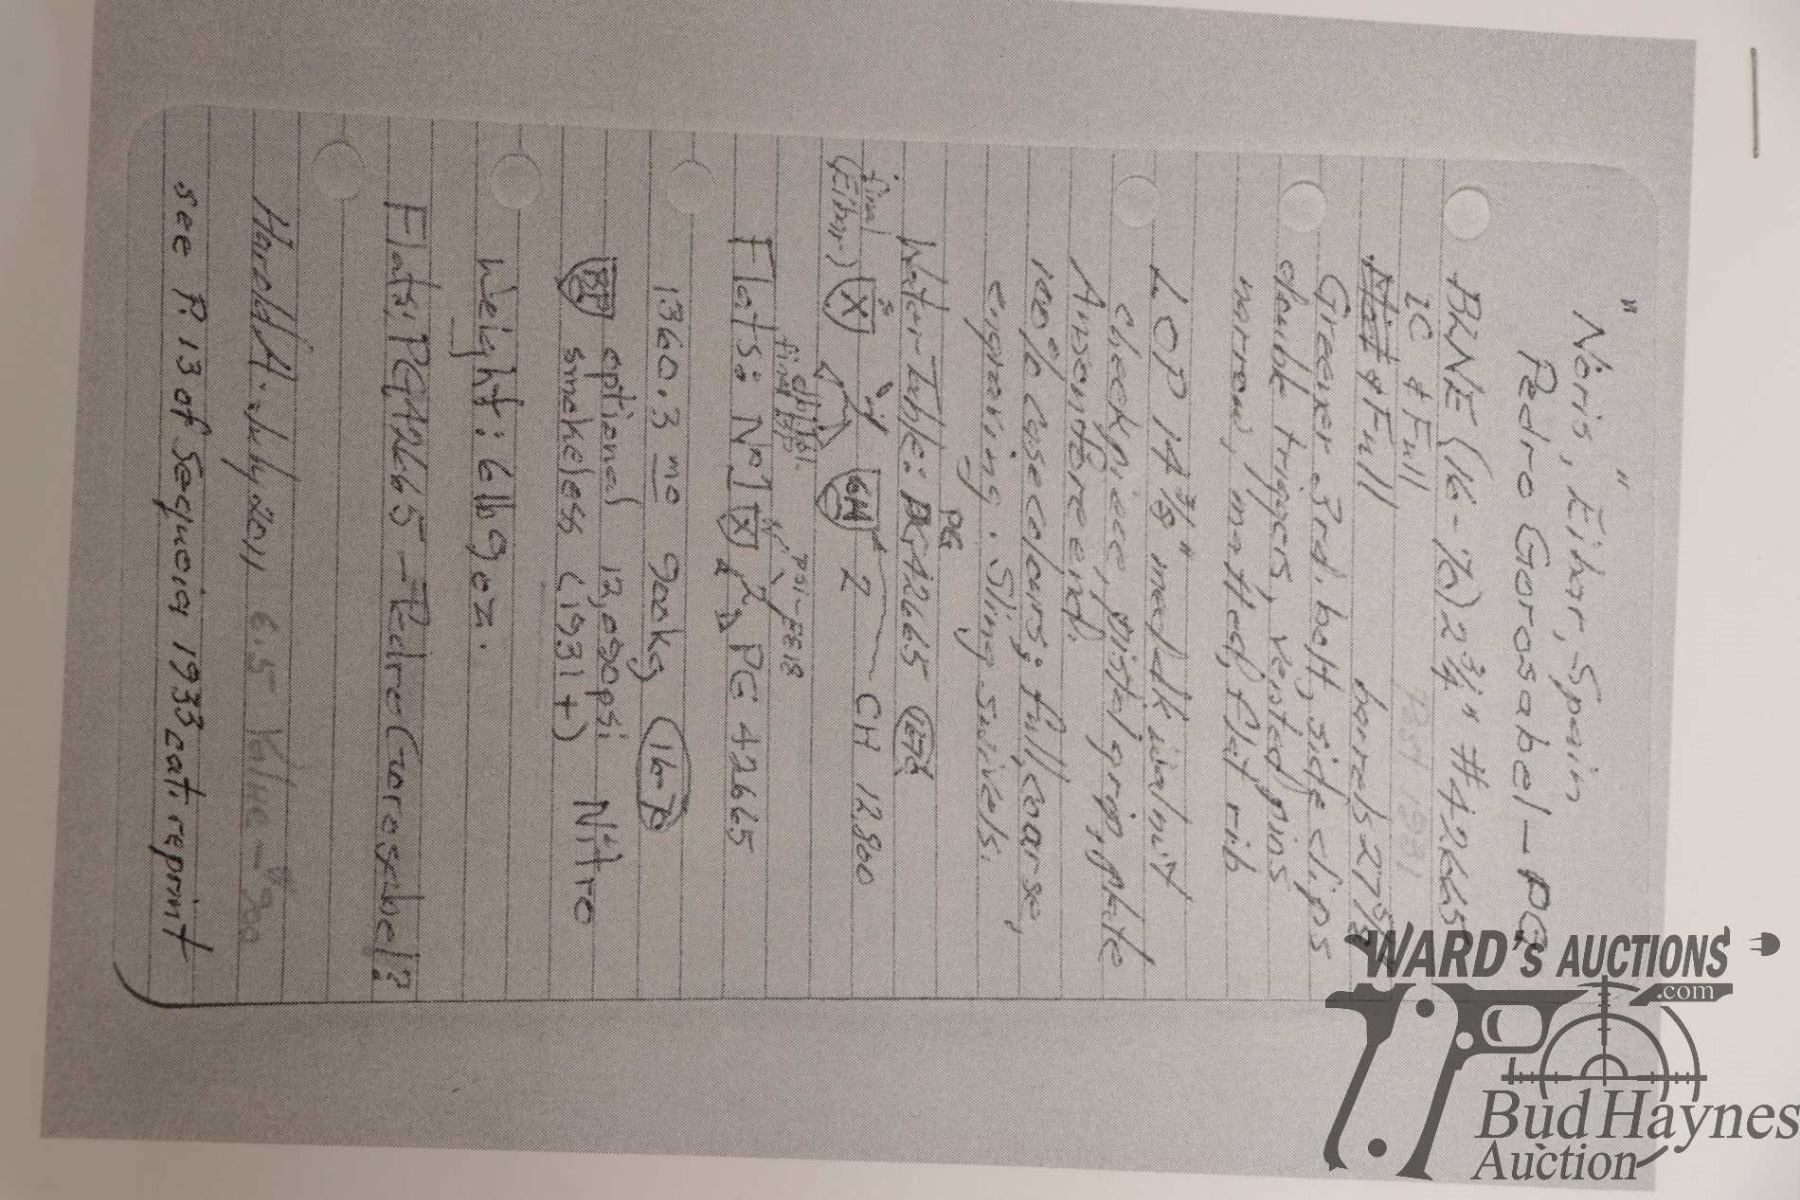 "Noris, Eibar, Spain"
Pedro Gorosabel - PG
BLNE (16-70) 2 3/4" #42665
IC & Full Post 1931
& Full barrels 27 5/8
Greener 3rd. bolt, side clips
double triggers, vented pins
narrow, matted, flat rib
LOP 14 3/8" med/dk walnut
cheekpiece, pistol grip, plate
Anson fore end.
100% case colours; full, coarse,
engraving. Sling swivels.
PG
Water Table: PG42665
final
(Eibar) X GH 2 CH 12,800
Flats: Nº1 X PG 42665
psi - FE18
1360.3 mo 900kg 16-70
BP optional 12,090psi Nitro
smokeless (1931+)
Weight: 6lb9oz.
Flats: PG42665 - Pedro Gorosabel?
Harold A. July 2011 6.5 Value - $900
see P. 13 of Sequoia 1933 cat. reprint
WARD's AUCTIONS
.com
Bud Haynes
Auction